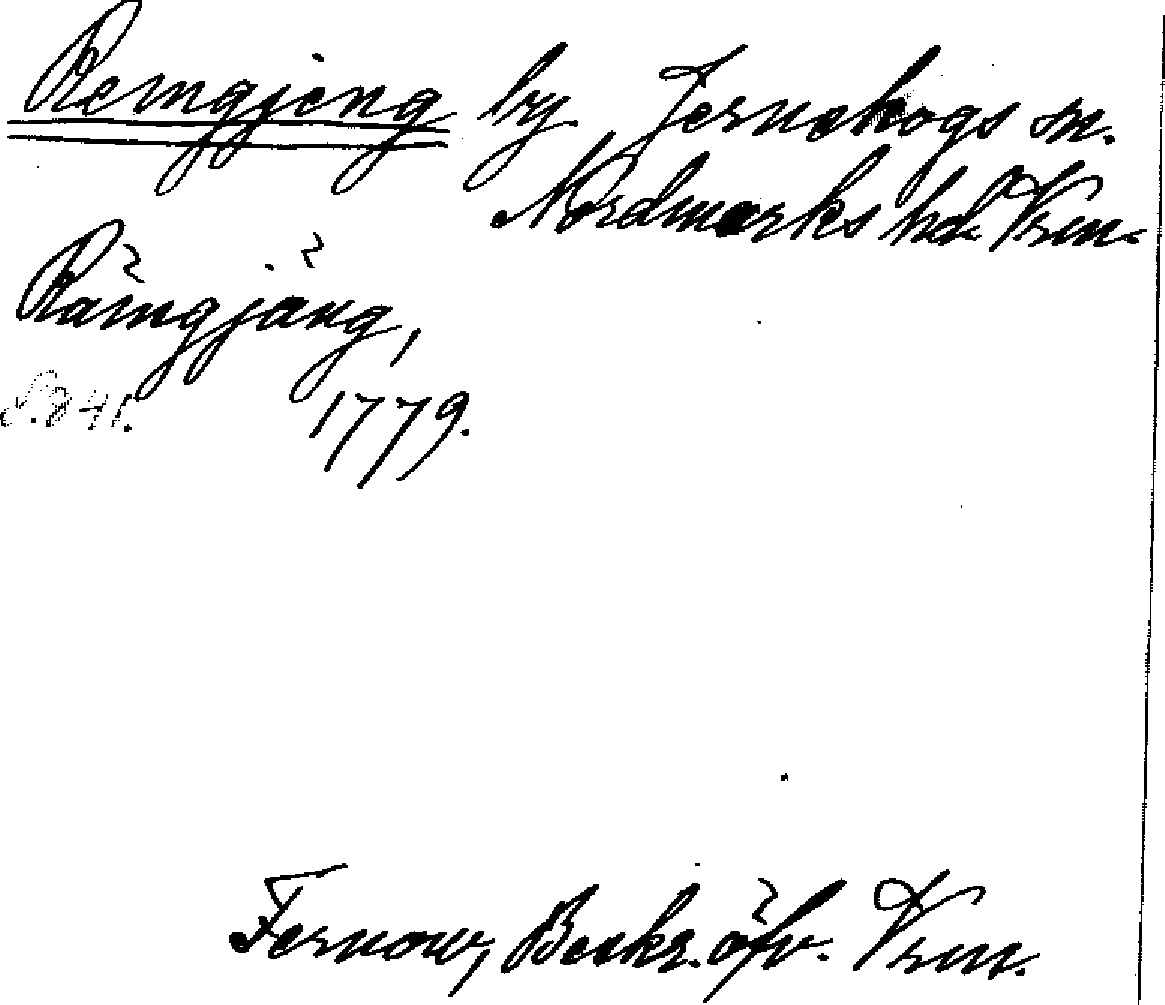 Remgjeng by. Jernskogs sn.
Nordmarks hd. Vrm.
Rämgjäng,
S. 241. 1779.
Fernow, Beskr. öfv. Vrm.